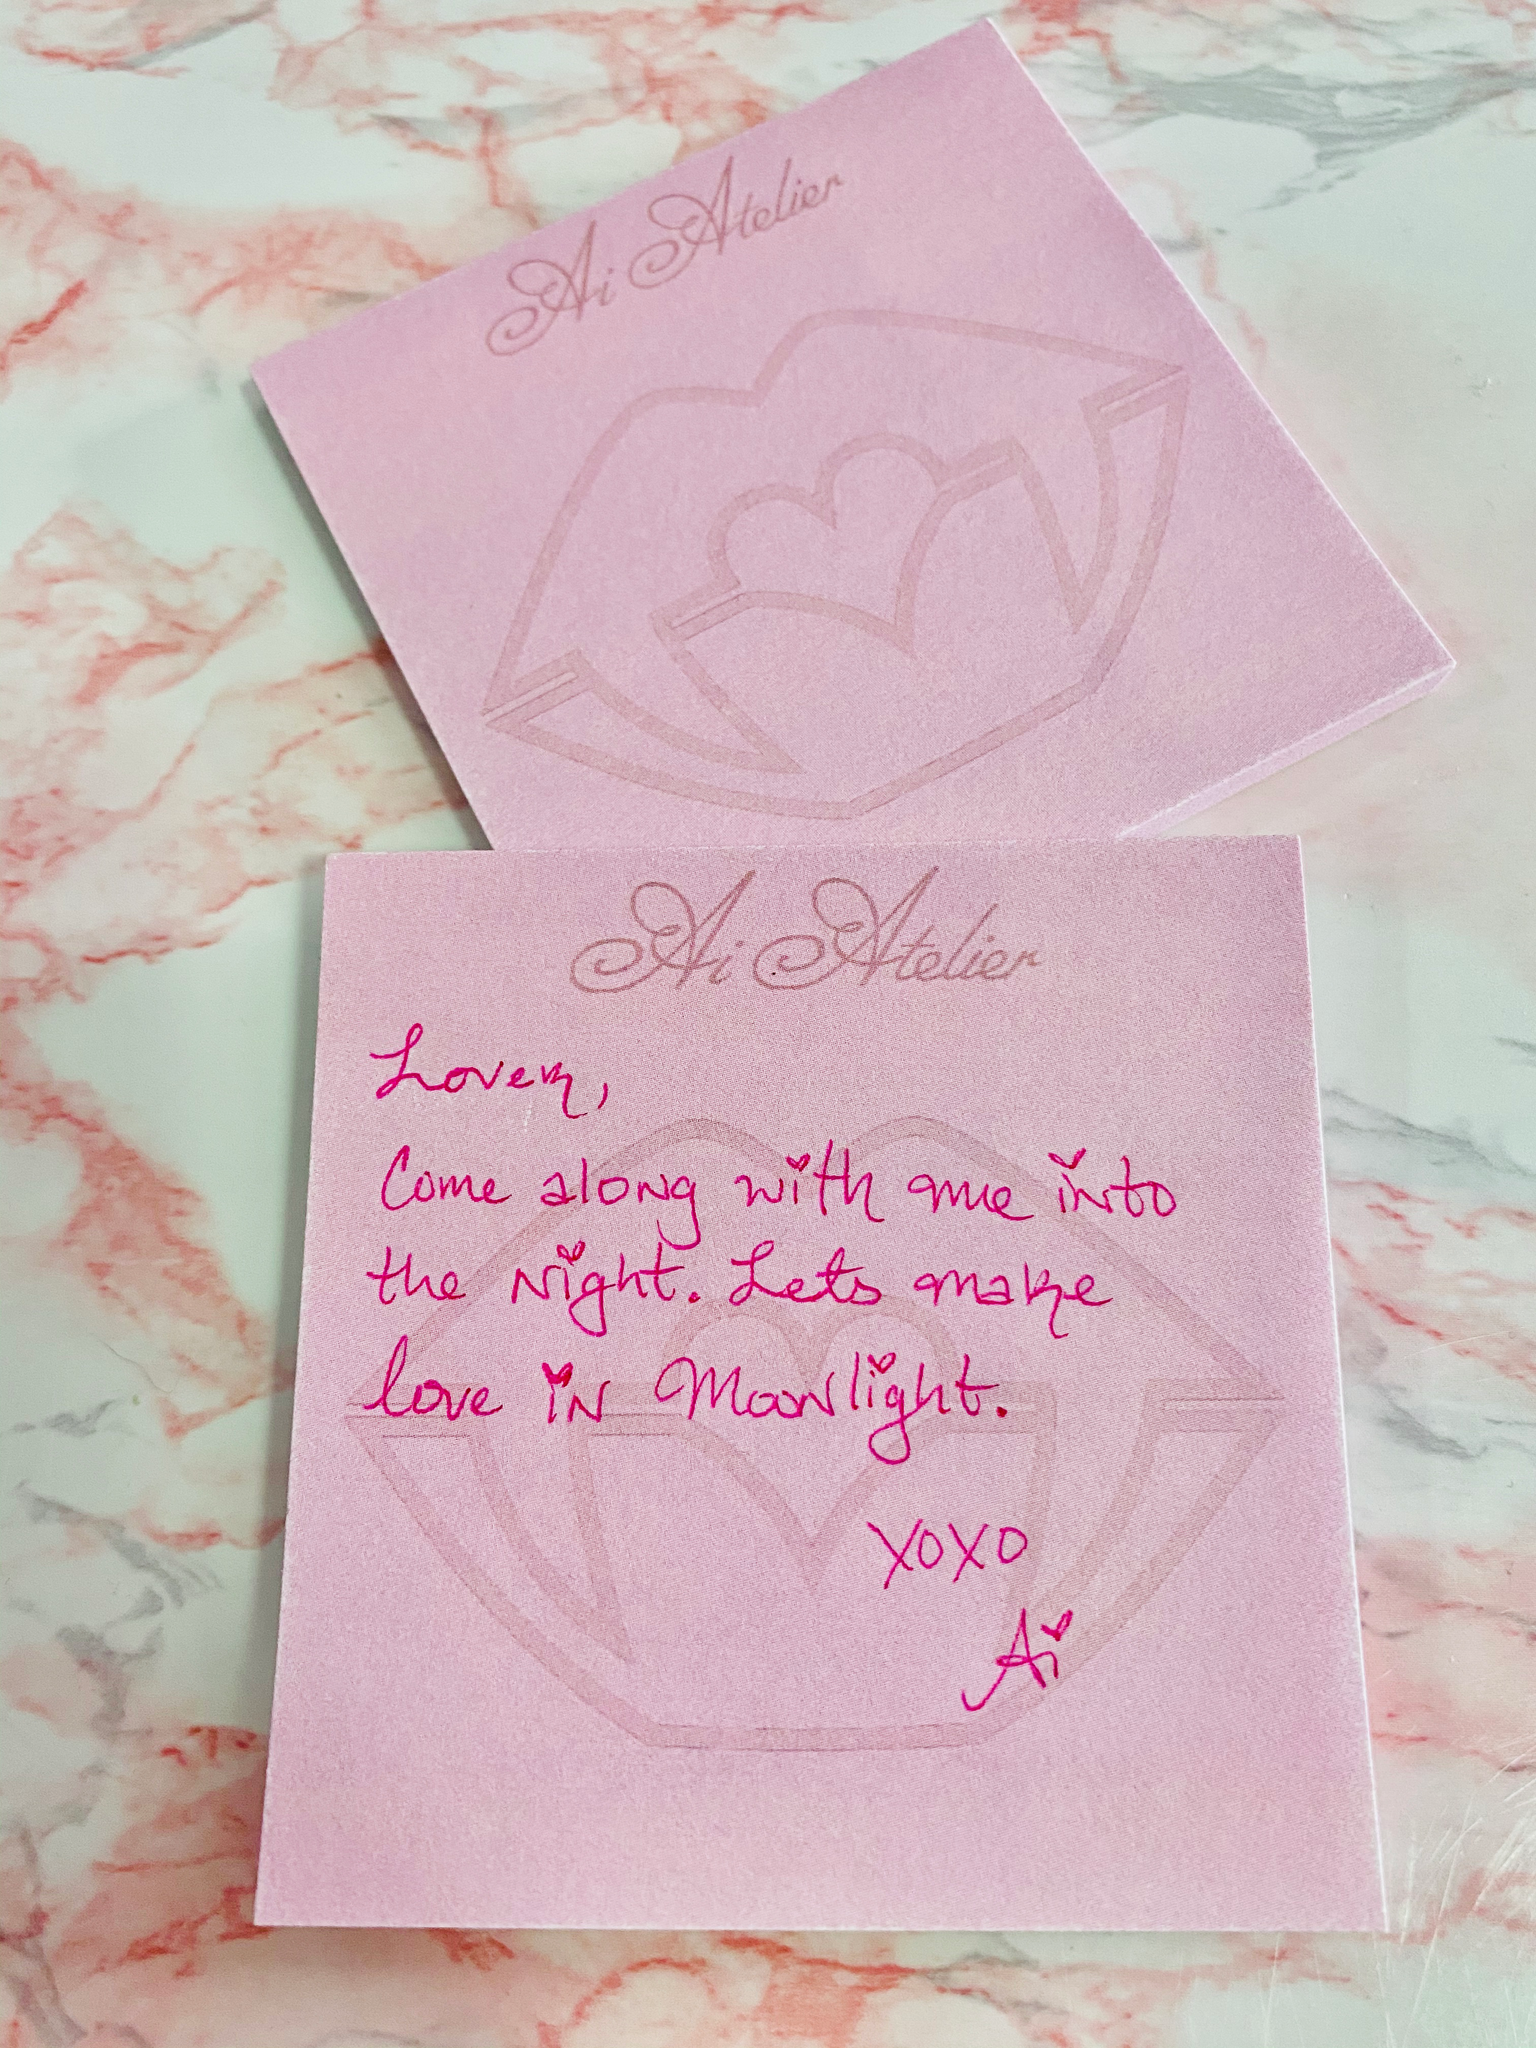 Ai Atelier
Ai Atelier
Lover,
Come along with me into
the Night. Lets make
love in Moonlight.
XOXO
Ai